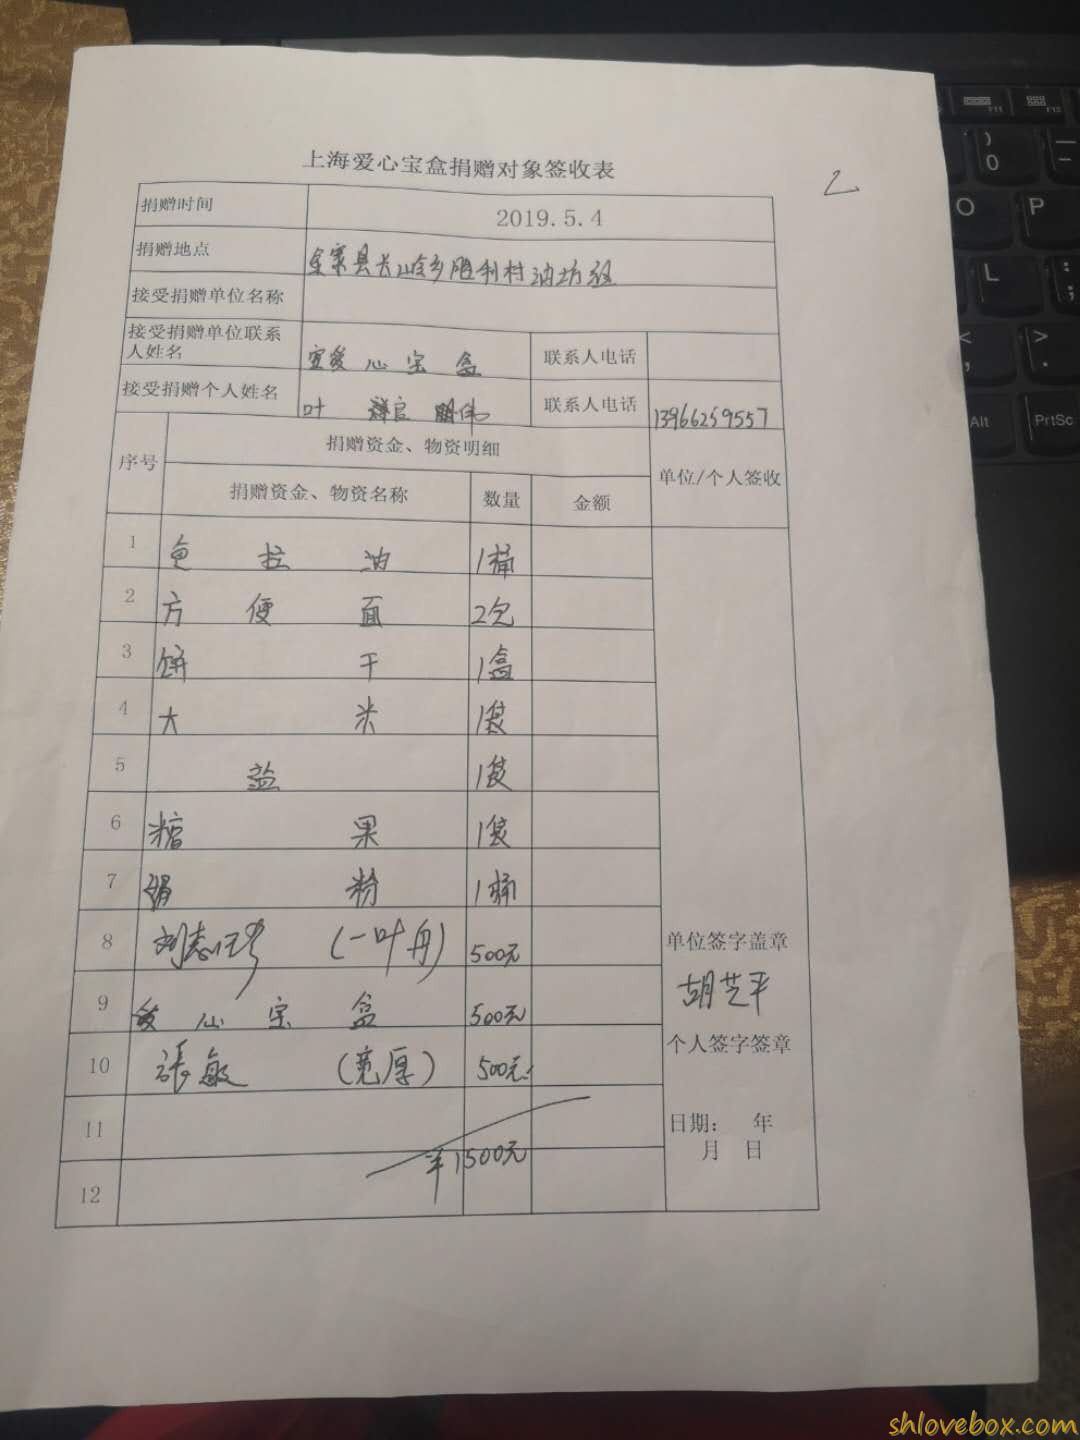 上海爱心宝盒捐赠对象签收表
2
捐赠时间 2019.5.4
捐赠地点 金寨县长岭乡胜利村油坊组
接受捐赠单位名称
接受捐赠单位联系人姓名 爱心宝盒 联系人电话
接受捐赠个人姓名 叶 联系人电话 13966259557
序号 捐赠资金、物资明细 单位/个人签收
捐赠资金、物资名称 数量 金额
1 色拉油 1桶
2 方便面 2包
3 饼干 1盒
4 大米 1袋
5 盐 1袋
6 糖果 1袋
7 粉 1桶
8 刘志 (一叶舟) 500元
9 爱心宝盒 500元
10 張敏 (宽厚) 500元
11
12
¥1500元
单位签字盖章
胡芝平
个人签字签章
日期： 年
月 日
F11 F12
) 0
—
O P
L : ;
< , > .
Alt PrtSc
shlovebox.com